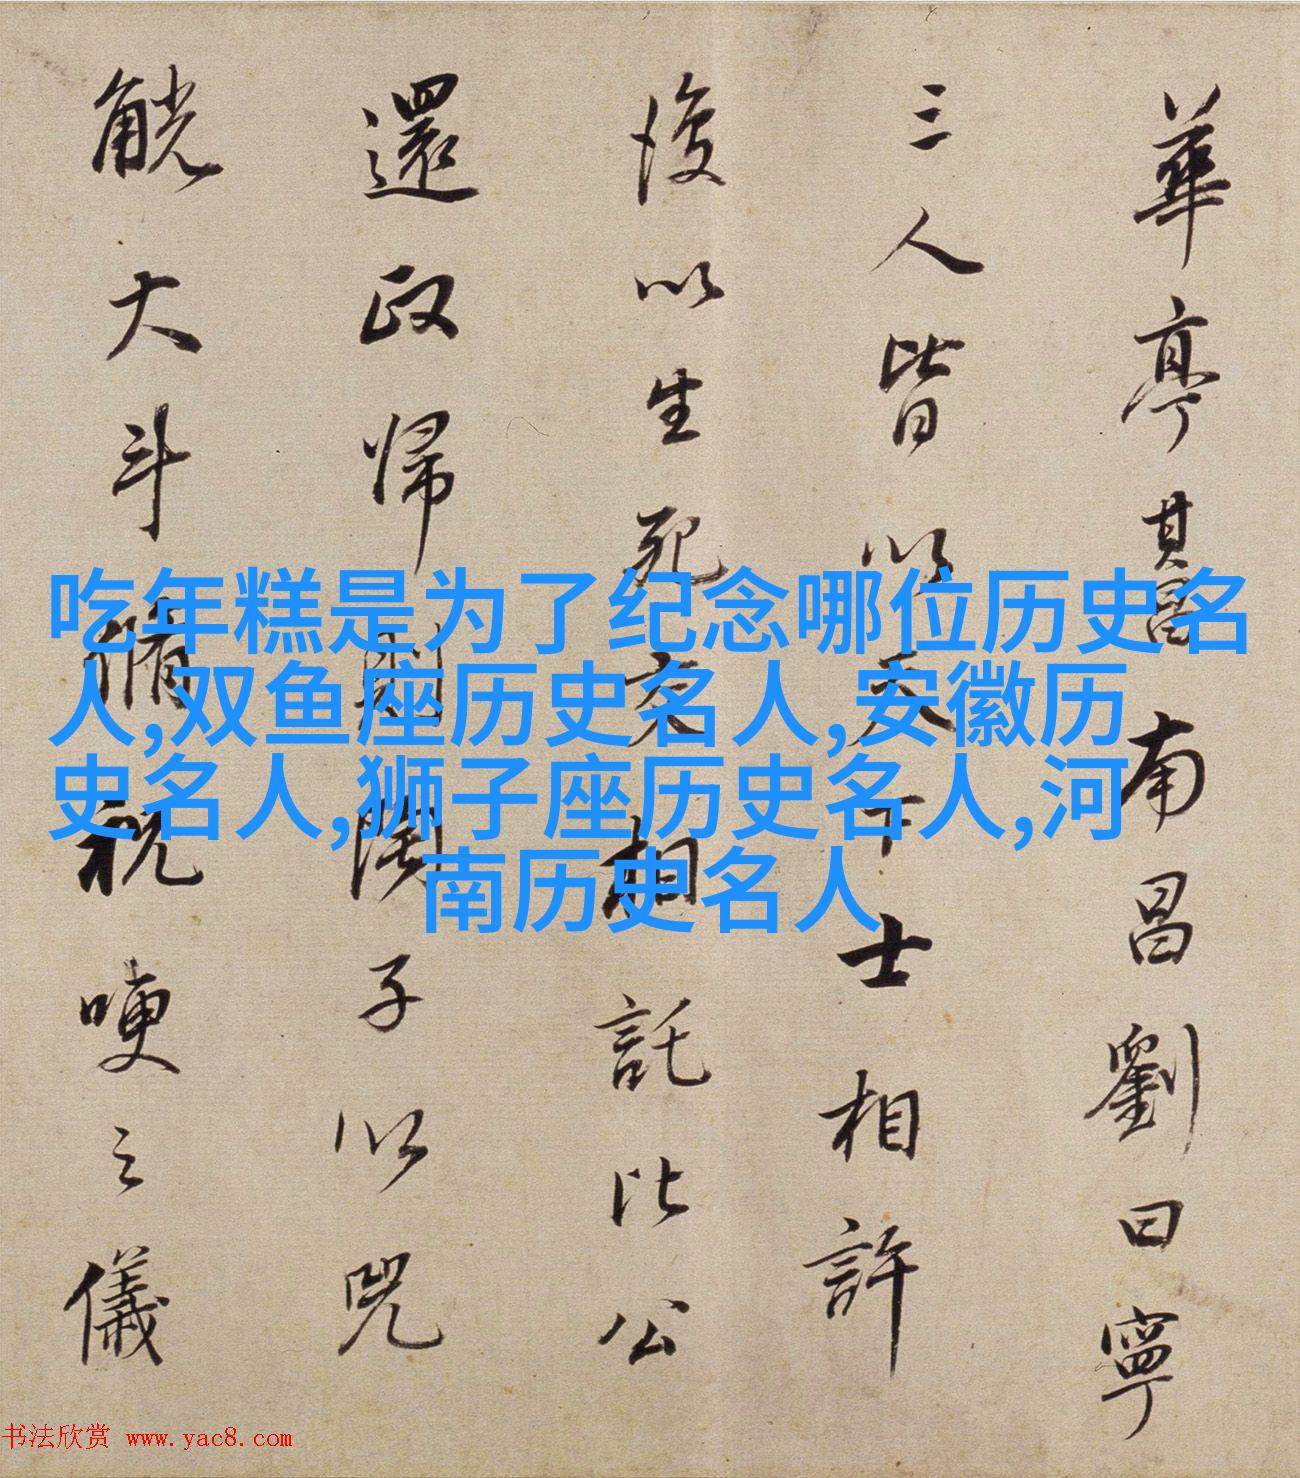 華亭其昌南昌劉曰寧
三人皆以天下士相許
後以生死交相託比公
還政歸則閎子以兕
觥大斗脩祝哽之儀
吃年糕是为了纪念哪位历史名
人,双鱼座历史名人,安徽历
史名人,狮子座历史名人,河
南历史名人
书法欣赏 www.yac8.com